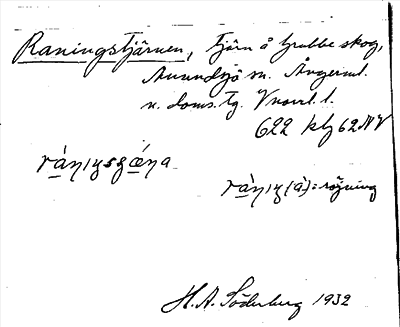 Raningstjärnen, tjärn å Grubbe skog,
Anundsjö sn. Ångerml.
n. doms. tg. V
622 kbz 62 NV
rànıŋsgǽŋa
ràŋıŋ(à) = röjning
H.A. Söderberg 1932